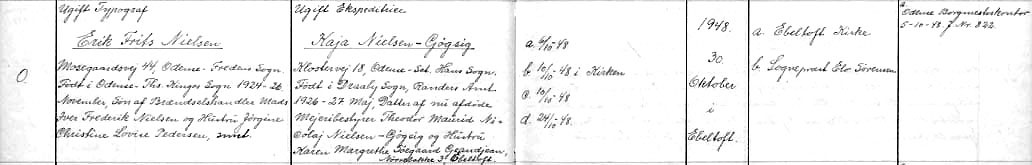 O
Ugift Typograf
Erik Frits Nielsen
Mosegaardsvej 44, Odense - Fredens Sogn.
Født i Odense - Ths. Kings Sogn 1924 - 26.
November, Søn af Brændselshandler Mads
Iver Frederik Nielsen og Hustru Jørgine
Christine Lovise Pedersen,
Ugift Ekspeditrice
Kaja Nielsen - Gjøgsig
Klostervej 18, Odense - Sct. Hans Sogn.
Født i Draaby Sogn, Randers Amt
1926 - 27 Maj, Datter af nu afdøde
Mejeribestyrer Theodor Maurid Ni-
colaj Nielsen - Gjøgsig og Hustru
Karen Margrethe Toegaard Grandjean,
Nørrebakke 3, Ebeltoft.
a. 6/10 48
b. 10/10 - 48 i Kirken
c. 10/10 - 48
d. 24/10 - 48.
1948.
30.
Oktober
i
Ebeltoft.
a. Ebeltoft Kirke
b. Sognepræst Elo Sørensen
a Odense Borgmesterkontor
5-10-48. J. Nr. 822.